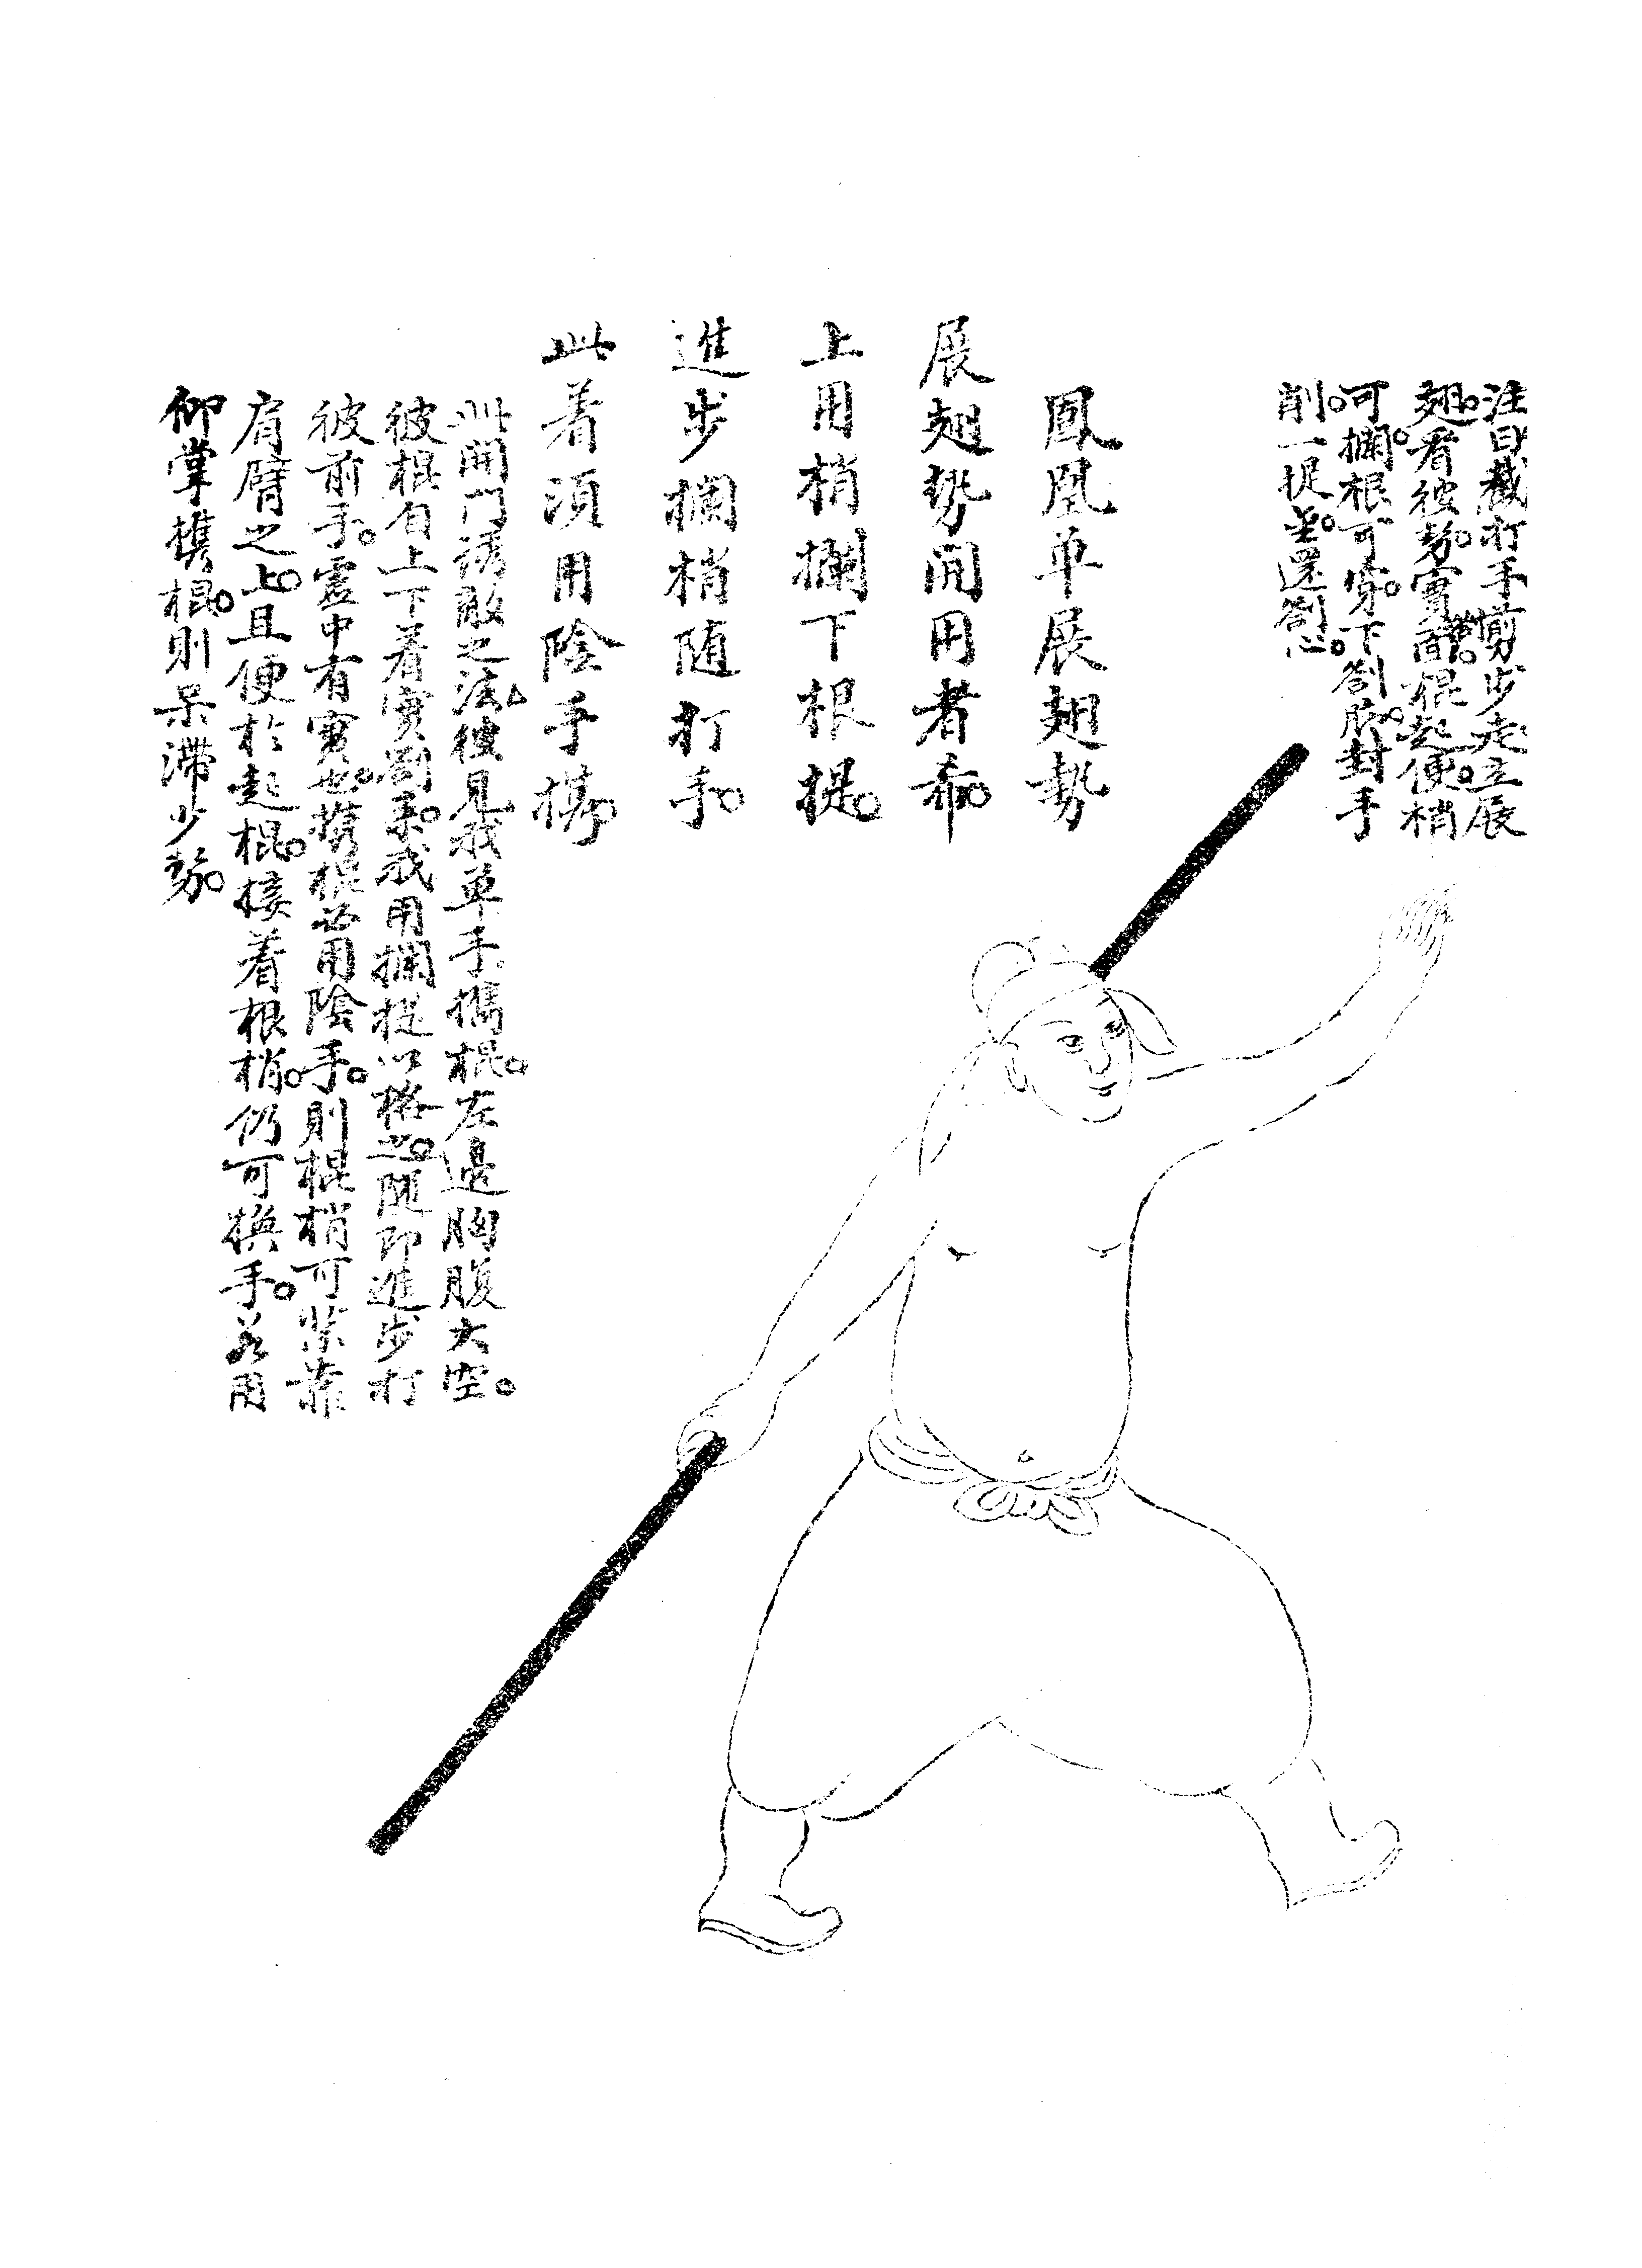 注曰截打手剪步走立展
翅看彼勢實帶面棍起便梢
可攔根可穿下劄膝封手
削一提坐還劄心
鳳凰单展翅勢
展翅勢開用者希
上用梢攔下根提
進步攔梢随打手
此着須用陰手携
此開門誘敵之法彼見我单手携棍左邊胸腹大空
彼棍自上下着實劄来我用攔提以格之随即進步打
彼前手虛中有實也携棍必用陰手則棍梢可紧靠
肩臂之上且便於起棍接着根梢仍可换手若用
仰掌携棍則呆滞少勢